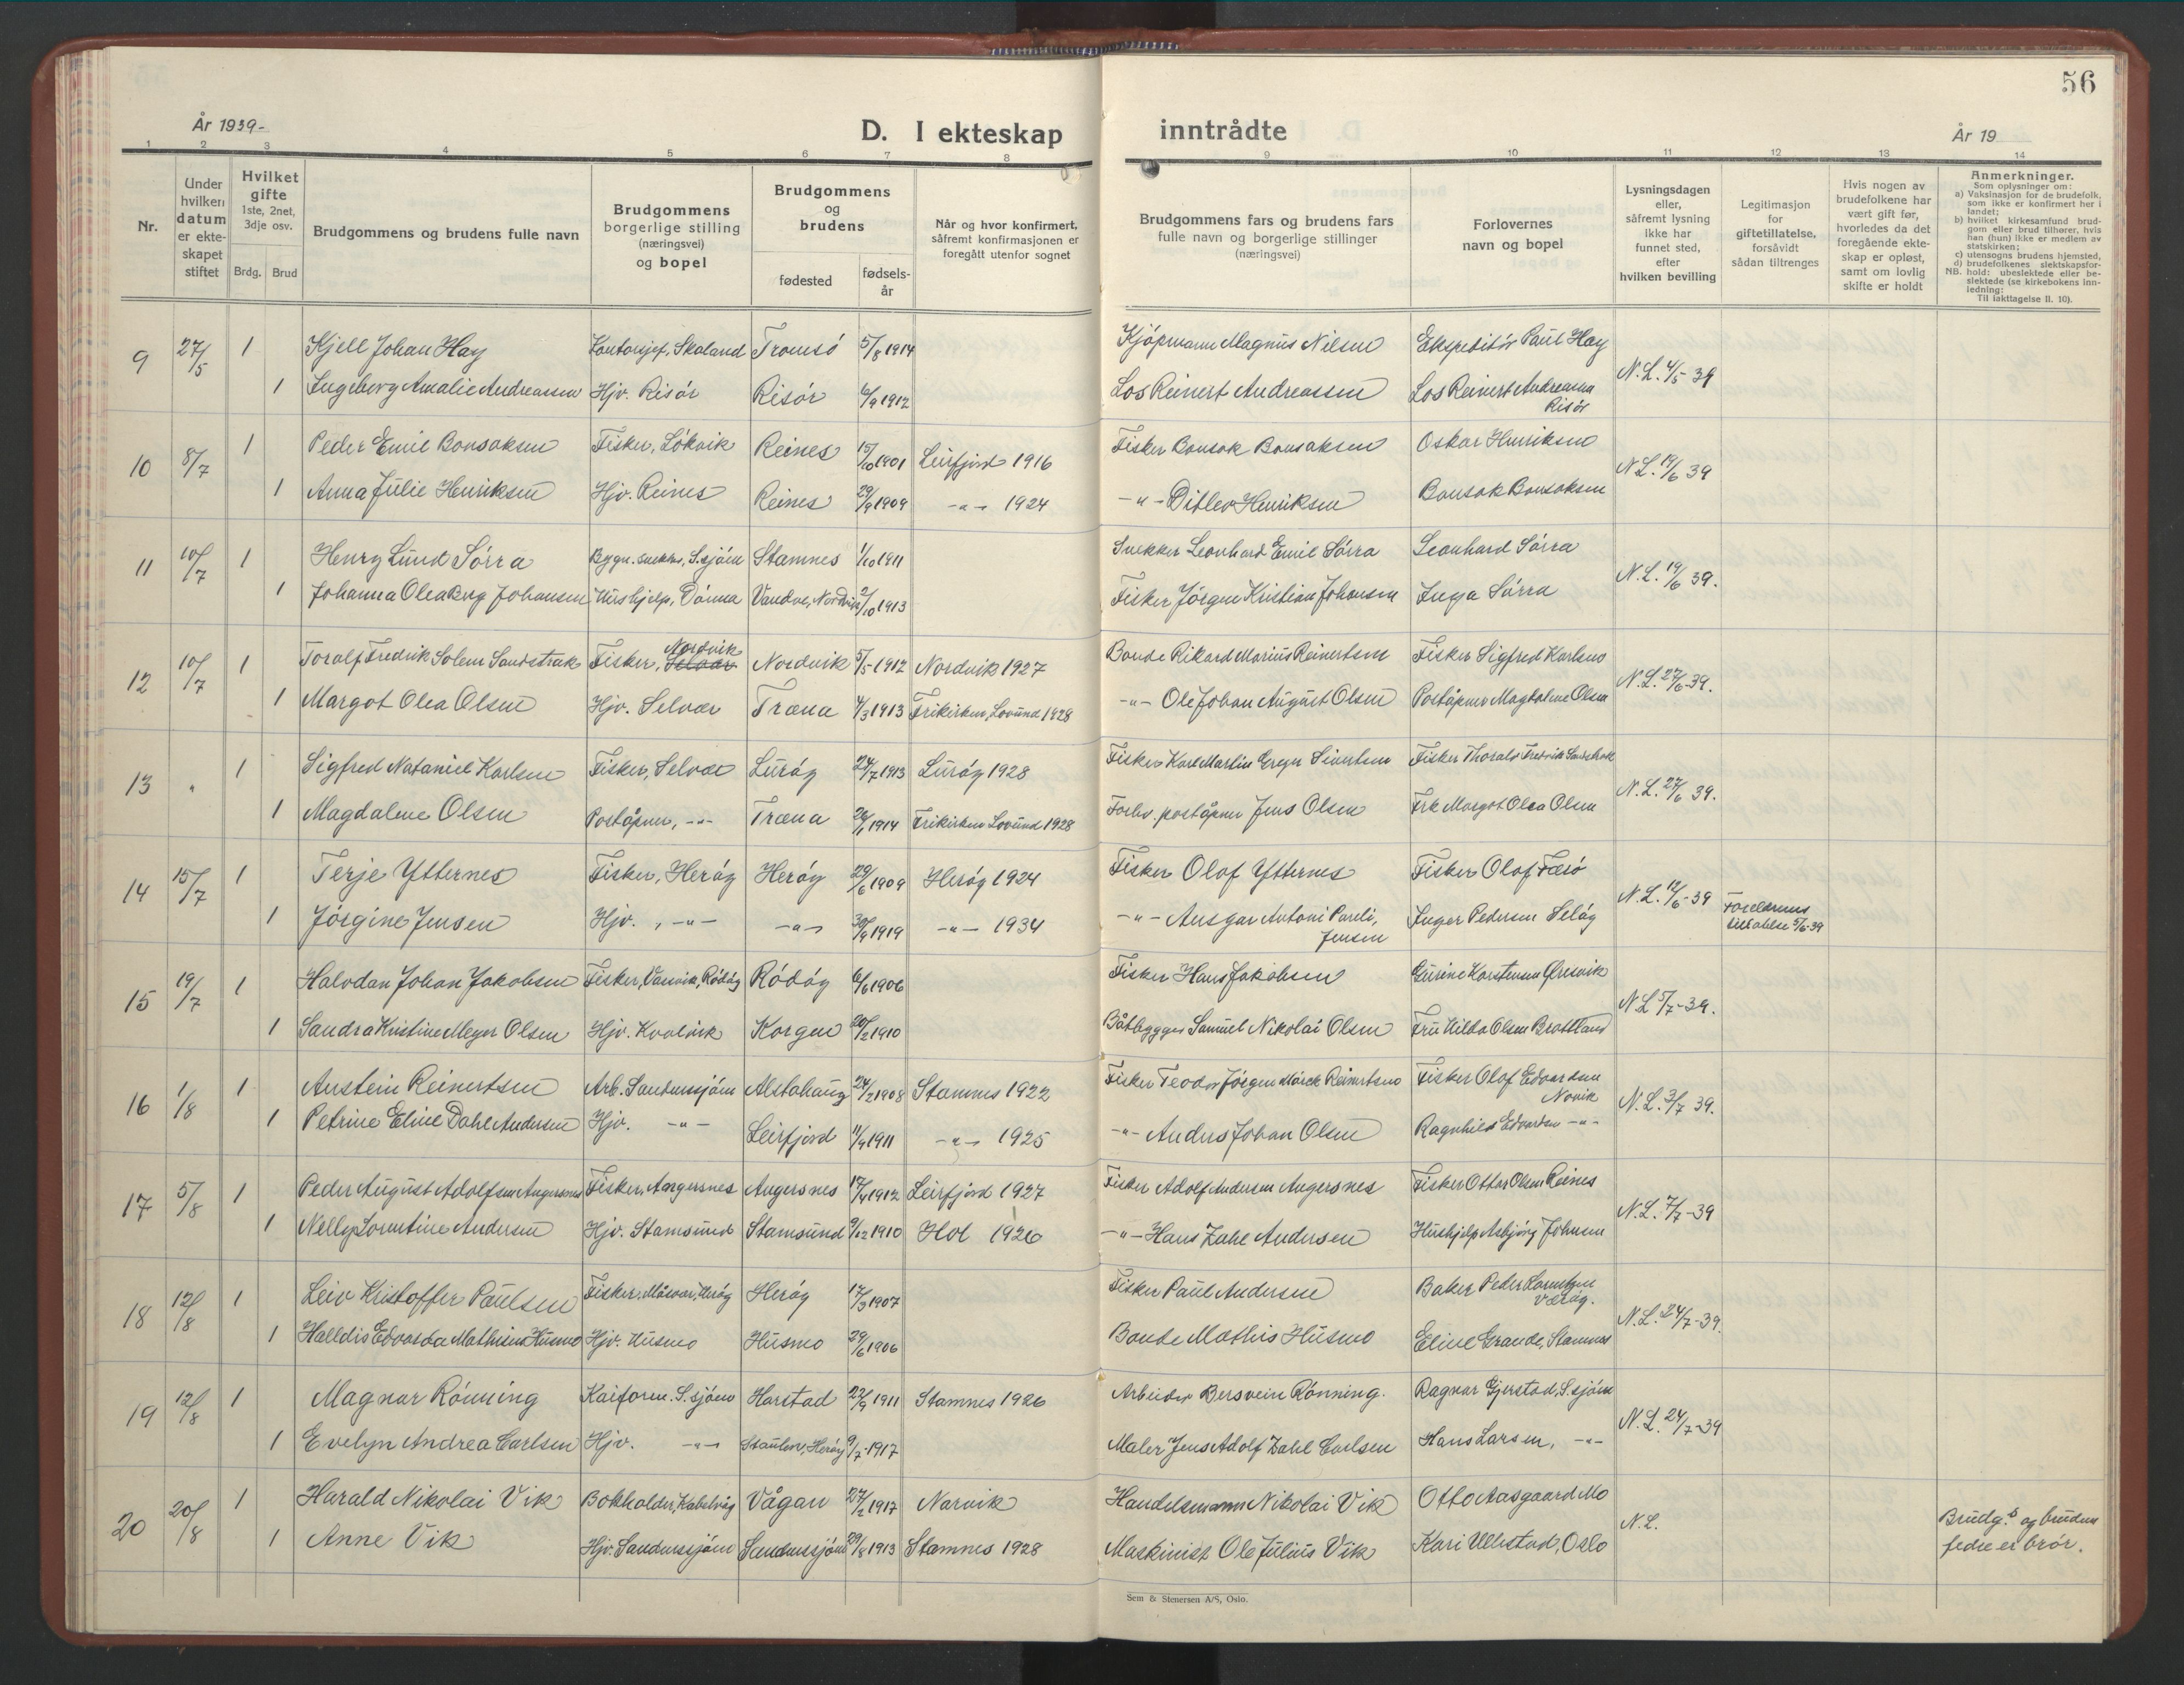 56
År 1939-
D. I ekteskap
inntrådte
År 19
1 2 3 4 5 6 7 8 9 10 11 12 13 14
Nr.
Under hvilken datum er ekteskapet stiftet
Hvilket gifte
1ste, 2net, 3dje osv.
Brdg. Brud
Brudgommens og brudens fulle navn
Brudgommens
borgerlige stilling
(næringsvei)
og bopel
Brudgommens
og
brudens
fødested
fødsels-
år
Når og hvor konfirmert,
såfremt konfirmasjonen er
foregått utenfor sognet
Brudgommens fars og brudens fars
fulle navn og borgerlige stillinger
(næringsvei)
Forlovernes
navn og bopel
Lysningsdagen
eller,
såfremt lysning
ikke har
funnet sted,
efter
hvilken bevilling
Legitimasjon
for
giftetillatelse,
forsåvidt
sådan tiltrenges
Hvis nogen av
brudefolkene har
vært gift før,
hvorledes da det
foregående ekte-
skap er opløst,
samt om lovlig
skifte er holdt
Anmerkninger.
Som oplysninger om:
a) Vaksinasjon for de brudefolk,
som ikke er konfirmert her i
landet;
b) hvilket kirkesamfund brud-
gom eller brud tilhører, hvis
han (hun) ikke er medlem av
statskirken;
c) utensogns brudens hjemsted,
d) brudefolkenes slektskapsfor-
NB. hold: ubeslektede eller be-
slektede (se kirkebokens inn-
ledning:
Til iakttagelse II. 10).
9 27/5 1 Kjell Johan Hay Kontorsjef, Skaland Tromsö 5/8 1914 Kjöpmann Magnus Nilsen Ekspeditör Paul Hay N.L. 4/5-39
1 Ingeborg Amalie Andreassen Hjv. Risör Risör 6/9 1912 Los Reinert Andreassen Los Reinert Andreassen
Risör
10 8/7 1 Peder Emil Bonsaksen Fisker, Lökvik Reines 15/10 1901 Leirfjord 1916 Fisker Bonsak Bonsaksen Oskar Henriksen N.L. 19/6 39
1 Anna Julie Henriksen Hjv. Reines Reines 29/9 1909 -"- 1924 -"- Ditlev Henriksen Bonsak Bonsaksen
11 10/7 1 Henry Lund Sörra Bygn. snekker, S.sjöen Stamnes 1/10 1911 Snekker Leonhard Emil Sörra Leonhard Sörra N.L. 19/6 39.
1 Johanna Olea Berg Johansen Hushjelp, Dönna Vandve, Nordvik 2/10 1913 Fisker Jörgen Kristian Johansen Inga Sörra
12 10/7 1 Toralf Fredrik Solem Sandstrak Fisker, Selvær Nordvik Nordvik 5/5-1912 Nordvik 1927 Bonde Rikard Marius Reinertsen Fisker Sigfred Karlsen N.L. 27/6-39.
1 Margot Olea Olsen Hjv. Selvær Træna 4/3 1913 Frikirken, Lovund 1928 -"- Ole Johan August Olsen Poståpner Magdalene Olsen
13 " 1 Sigfred Nataniel Karlsen Fisker, Selvær Luröy 24/7 1913 Luröy 1928 Fisker Karl Martin Greger Sivertsen Fisker Thoralv Fredrik Sandstrak N.L. 27/6 39.
1 Magdalene Olsen Poståpner, -"- Træna 26/1 1914 Frikirken Lovund 1928 Forhv. poståpner Jens Olsen Frk Margot Olea Olsen
14 15/7 1 Terje Ytternes Fisker, Heröy Heröy 29/6 1909 Heröy 1924 Fisker Olof Ytternes Fisker Olof Færö N.L. 12/6-39 Foreldrenes
tillatelse 5/6-39
1 Jörgine Jensen Hjv. , -"- -"- 30/9 1919 -"- 1934 -"- Ansgar Antoni Pareli,
Jensen Inger Pedersen Selöy
15 19/7 1 Halvdan Johan Jakobsen Fisker, Værvik, Rödöy Rödöy 6/6 1906 Fisker Hans Jakobsen Gurine Karstensen Øresvik N.L 5/7-39.
1 Sandra Kristine Meyer Olsen Hjv. Kvalvik Korgen 20/2 1910 Båtbygger Samuel Nikolai Olsen Fru Hilda Olsen Brattland
16 1/8 1 Austein Reinertsen Arb. Sandnessjöen Alstahaug 24/2 1908 Stamnes 1922 Fisker Teodor Jörgen Mörck Reinertsen Fisker Olof Edvardsen
Novik N.L. 3/7 39.
1 Petrine Eline Dahl Andersen Hjv. -"- Leirfjord 11/9 1911 -"- 1925 -"- Anders Johan Olsen Ragnhild Edvardsen -"-
17 5/8 1 Peder August Adolfsen Angersnes Fisker, Angersnes Angersnes 17/4 1912 Leirfjord 1927 Fisker Adolf Andersen Angersnes Fisker Ottar Olsen Reines N.L. 7/7-39
1 Nelly Sorentine Andersen Hjv. Stamsund Stamsund 9/12 1910 Hol 1926 -"- Hans Zahl Andersen Hushjelp Asbjörg Johnsen
18 12/8 1 Leiv Kristoffer Paulsen Fisker, Måsvær, Heröy Heröy 17/3 1907 Fisker Paul Andersen Baker Peder Lorentzen
Værøy. N.L. 24/7-39.
1 Halldis Edvarda Mathisen Husmo Hjv. Husmo Husmo 29/6 1906 Bonde Mathis Husmo Eline Grande, Stamnes
19 12/8 1 Magnar Rönning Kaiform. S.sjöen Harstad 22/9 1911 Stamnes 1926 Arbeider Bersvein Rönning. Ragnar Gjerstad, S.sjöen N.L. 24/7-39
1 Evelyn Andrea Carlsen Hjv. -"- Staulen, Heröy 9/7-1917 Maler Jens Adolf Zahl Carlsen Hans Larsen, -"-
20 20/8 1 Harald Nikolai Vik Bokholder, Kabelvåg Vågan 27/2 1917 Narvik Handelsmann Nikolai Vik Otto Aasgaard Mo N.L. Brudg.s og brudens
fedre er brör.
1 Anne Vik Hjv. Sandnessjöen Sandnessjöen 29/8 1913 Stamnes 1928 Maskinist Ole Julius Vik Kari Ullestad, Oslo
Sem & Stenersen A/S, Oslo.